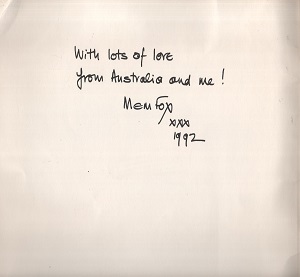 With lots of love
from Australia and me!
Mem Fox
xxx
1992